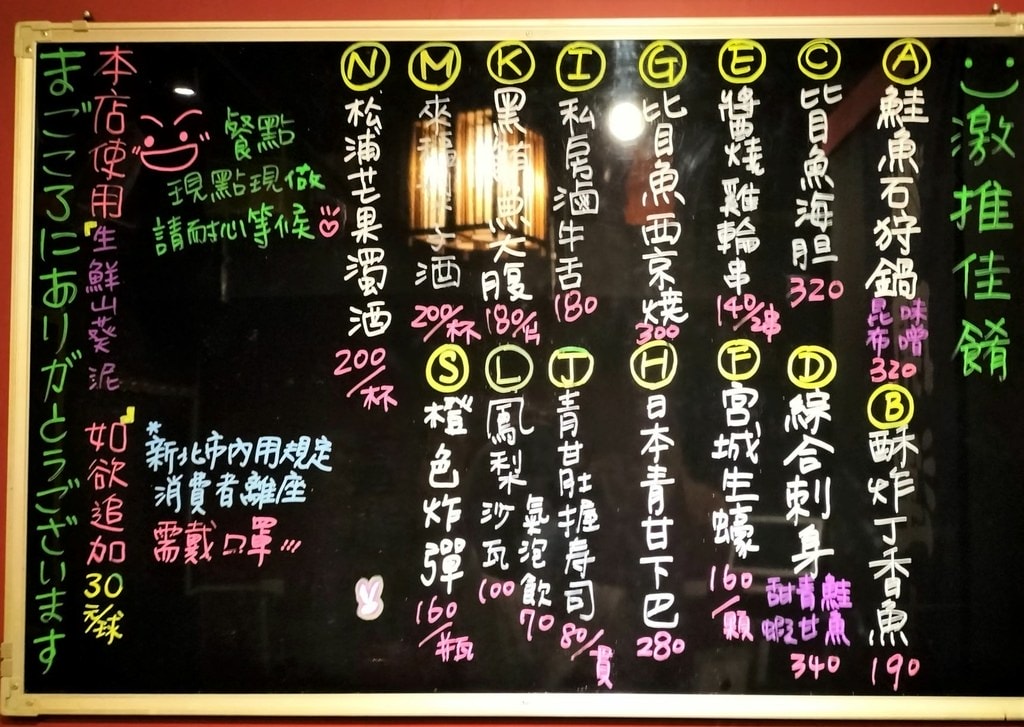 激推佳餚
A
鮭魚石狩鍋
味噌
昆布
320
B
酥炸丁香魚
190
C
比目魚海胆
320
D
綜合刺身
鮭魚
青甘
甜蝦
340
E
醬燒雞輪串
140/串
F
宮城生蠔
160/顆
G
比目魚西京燒
300
H
日本青甘下巴
280
I
私房滷牛舌
180
J
青甘肚握寿司
80/貫
K
黑鮪魚大腹
180/片
L
鳳梨沙瓦
100
氣泡飲
70
M
酒
200/杯
S
橙色炸彈
160/瓶
N
松浦芒果濁酒
200/杯
餐點
現點現做
請耐心等候
*新北市內用規定
消費者離座
需戴口罩
本店使用『生鮮山葵泥』如欲追加30元/球
まごころにありがとうございます